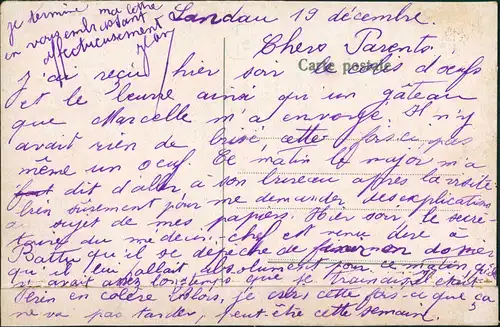 Landau 19 décembre.
Chers Parents
Carte postale
J'ai reçu hier soir le colis d'oeufs
et le beurre ainsi qu'un gâteau
que Marcelle m'a envoyé. Il n'y
avait rien de brisé, cette fois-ci, pas
même un oeuf. Ce matin le major m'a
dit d'aller à son bureau après la visite
bien sûrement pour me demander des explications
au sujet de mes papiers. Hier soir, le secré-
taire du médecin chef est venu dire à
Battu qu'il se dépêche de donner
qu'il leur fallait absolument pour ce matin, qu'il
y avait assez longtemps que le trainait était
en colère alors, je crois cette fois-ci que ça
ne va pas tarder, peut être cette semaine.
5
je termine ma lettre
en vous embrassant
affectueusement
Jean